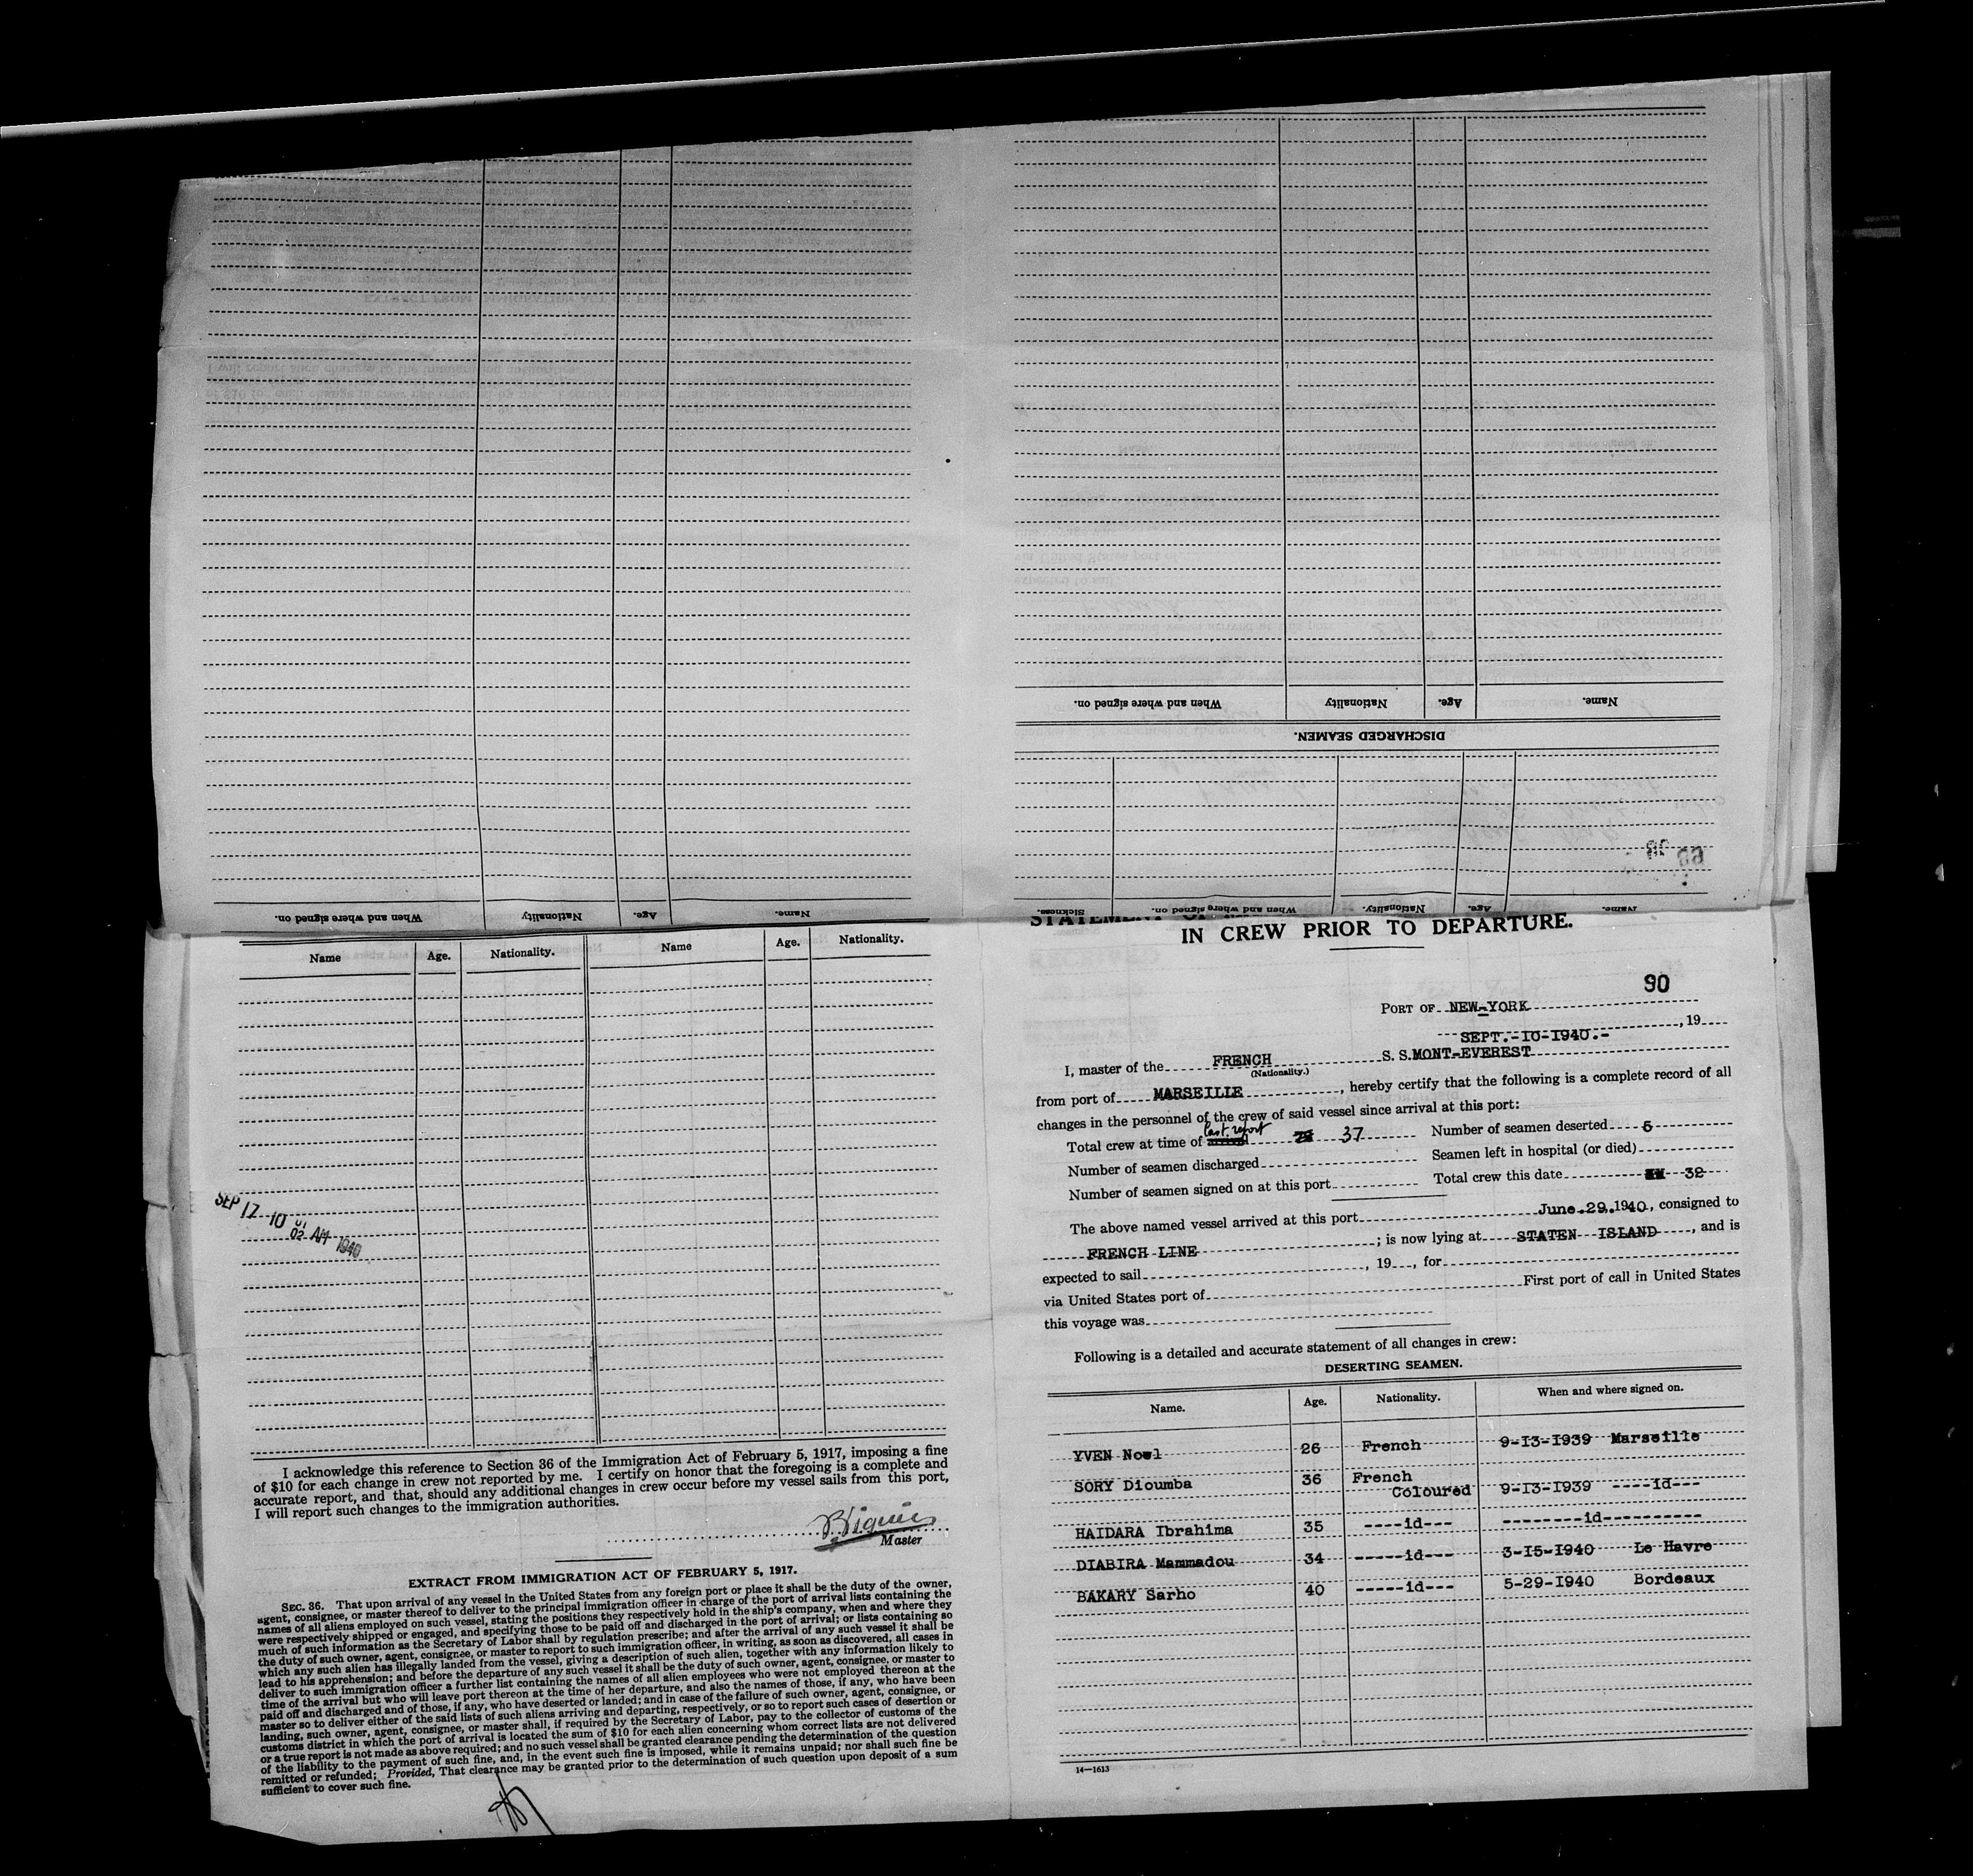 When and where signed on.
Nationality
Age.
Name.
DISCHARGED SEAMEN.
Sickness.
When and where signed on.
Nationality.
Age.
Name.
When and where signed on.
Nationality
Age.
Name.
89
Name
Age.
Nationality.
Name
Age.
Nationality.
SEP 17 10 01 AM 1940
02
I acknowledge this reference to Section 36 of the Immigration Act of February 5, 1917, imposing a fine
of $10 for each change in crew not reported by me. I certify on honor that the foregoing is a complete and
accurate report, and that, should any additional changes in crew occur before my vessel sails from this port,
I will report such changes to the immigration authorities.
Master
EXTRACT FROM IMMIGRATION ACT OF FEBRUARY 5, 1917.
SEC. 36. That upon arrival of any vessel in the United States from any foreign port or place it shall be the duty of the owner,
agent, consignee, or master thereof to deliver to the principal immigration officer in charge of the port of arrival lists containing the
names of all aliens employed on such vessel, stating the positions they respectively hold in the ship's company, when and where they
were respectively shipped or engaged, and specifying those to be paid off and discharged in the port of arrival; or lists containing so
much of such information as the Secretary of Labor shall by regulation prescribe; and after the arrival of any such vessel it shall be
the duty of such owner, agent, consignee, or master to report to such immigration officer, in writing, as soon as discovered, all cases in
which any such alien has illegally landed from the vessel, giving a description of such alien, together with any information likely to
lead to his apprehension; and before the departure of any such vessel it shall be the duty of such owner, agent, consignee, or master to
deliver to such immigration officer a further list containing the names of all alien employees who were not employed thereon at the
time of the arrival but who will leave port thereon at the time of her departure, and also the names of those, if any, who have been
paid off and discharged and of those, if any, who have deserted or landed; and in case of the failure of such owner, agent, consignee, or
master so to deliver either of the said lists of such aliens arriving and departing, respectively, or so to report such cases of desertion or
landing, such owner, agent, consignee, or master shall, if required by the Secretary of Labor, pay to the collector of customs of the
customs district in which the port of arrival is located the sum of $10 for each alien concerning whom correct lists are not delivered
or a true report is not made as above required; and no such vessel shall be granted clearance pending the determination of the question
of the liability to the payment of such fine, and, in the event such fine is imposed, while it remains unpaid; nor shall such fine be
remitted or refunded; Provided, That clearance may be granted prior to the determination of such question upon deposit of a sum
sufficient to cover such fine.
STATEMENT OF
IN CREW PRIOR TO DEPARTURE.
90
PORT OF NEW-YORK
SEPT.-10-1940.- , 19
I, master of the FRENCH S. S. MONT-EVEREST
(Nationality.)
from port of MARSEILLE , hereby certify that the following is a complete record of all
changes in the personnel of the crew of said vessel since arrival at this port:
last report
Total crew at time of arrival 37 Number of seamen deserted 5
Number of seamen discharged Seamen left in hospital (or died)
Number of seamen signed on at this port Total crew this date 32
The above named vessel arrived at this port June 29, 1940, consigned to
FRENCH LINE ; is now lying at STATEN ISLAND , and is
expected to sail , 19 , for
via United States port of First port of call in United States
this voyage was
Following is a detailed and accurate statement of all changes in crew:
DESERTING SEAMEN.
Name. Age. Nationality. When and where signed on.
YVEN Noel 26 French 9-13-1939 Marseille
SORY Dioumba 36 French Coloured 9-13-1939 ----id---
HAIDARA Ibrahima 35 ----id--- --------id----------
DIABIRA Mammadou 34 -----id--- 3-15-1940 Le Havre
BAKARY Sarho 40 -----id--- 5-29-1940 Bordeaux
14—1613